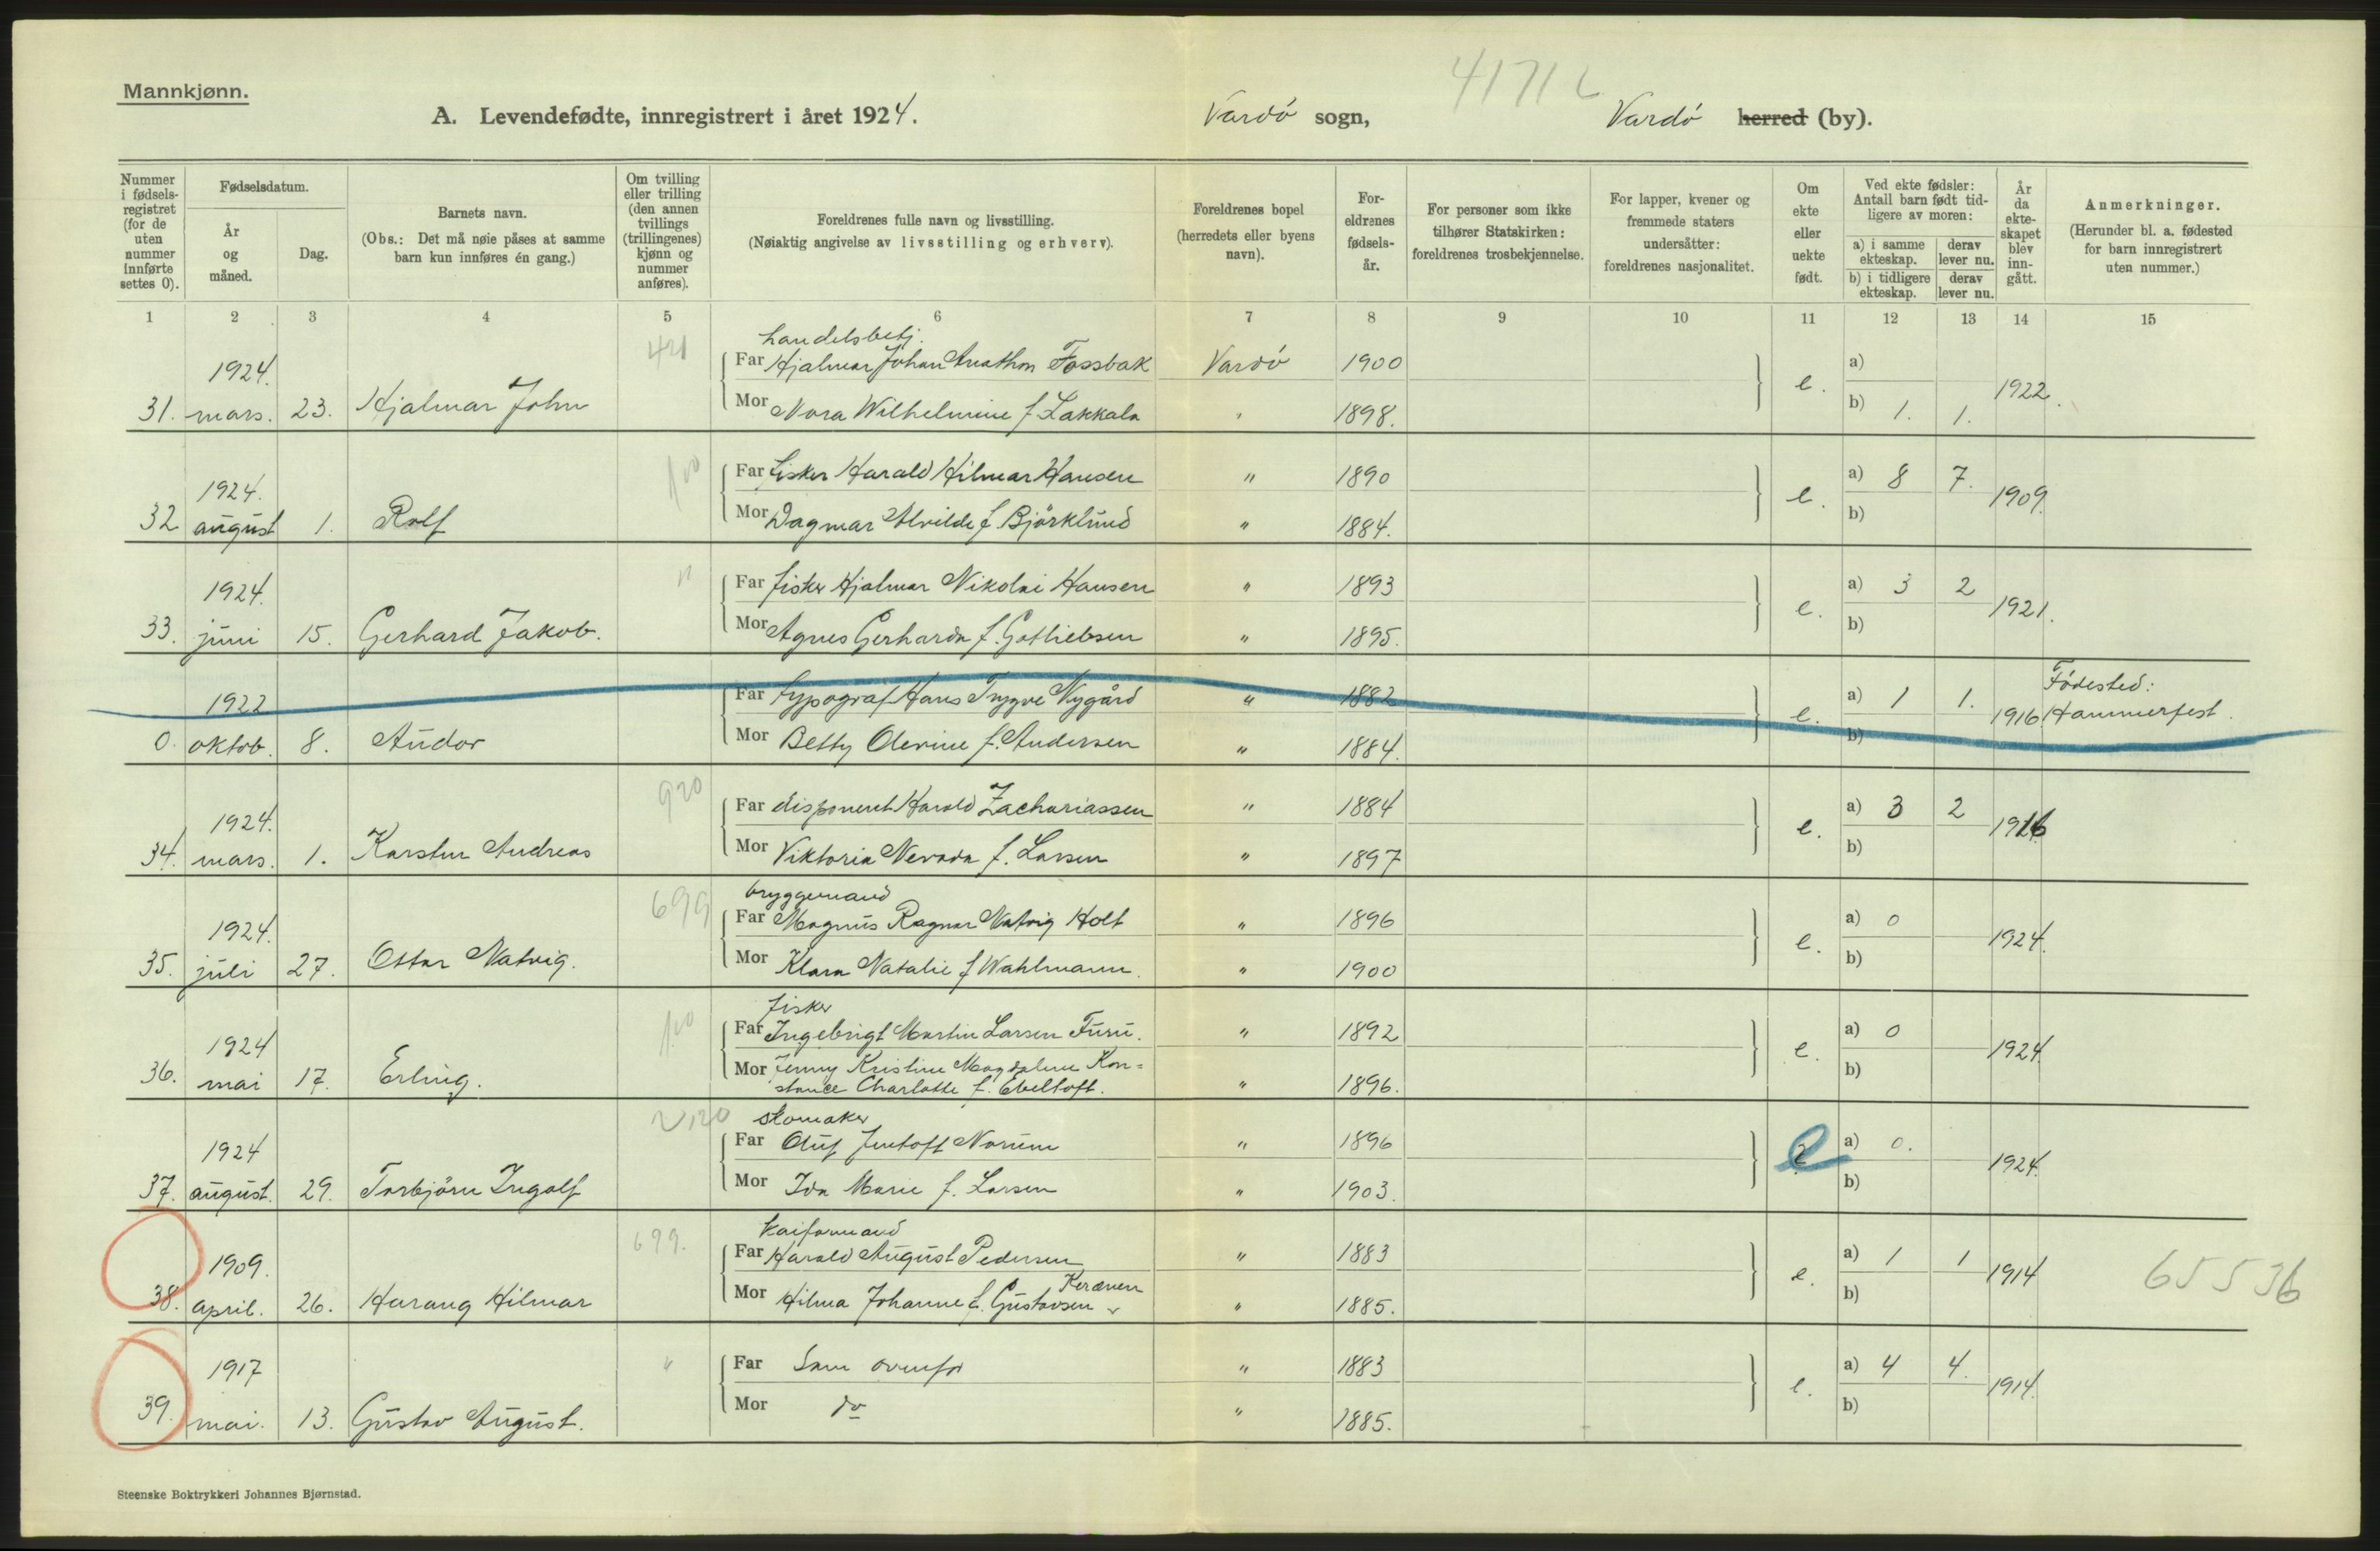 Mannkjønn.
41716
A. Levendefødte, innregistrert i året 1924. Vardø sogn, Vardø herred (by).
Nummer i fødsels-registret (for de uten nummer innførte settes 0).
Fødselsdatum.
År og måned.
Dag.
Barnets navn.
(Obs.: Det må nøie påses at samme barn kun innføres én gang.)
Om tvilling eller trilling (den annen tvillings (trillingenes) kjønn og nummer anføres).
Foreldrenes fulle navn og livsstilling.
(Nøiaktig angivelse av livsstilling og erhverv).
Foreldrenes bopel (herredets eller byens navn).
For-eldrenes fødsels-år.
For personer som ikke tilhører Statskirken: foreldrenes trosbekjennelse.
For lapper, kvener og fremmede staters undersåtter: foreldrenes nasjonalitet.
Om ekte eller uekte født.
Ved ekte fødsler: Antall barn født tid-ligere av moren:
a) i samme ekteskap.
derav lever nu.
b) i tidligere ekteskap.
derav lever nu.
År da ekte-skapet blev inn-gått.
Anmerkninger.
(Herunder bl. a. fødested for barn innregistrert uten nummer.)
1 2 3 4 5 6 7 8 9 10 11 12 13 14 15
handelsbetj.
1924. Far Hjalmar Johan Fossbak Vardø 1900 a)
31. mars. 23. Hjalmar John Mor Nora Wilhelmine f. Lakkala " 1898. e. b) 1. 1. 1922.
1924. 100 Far fisker Harald Hilmar Hansen " 1890 a) 8 7.
32 august 1. Rolf Mor Dagmar Alvilde f. Björklund " 1884. e. b) 1909.
1924. " Far fisker Hjalmar Nikolai Hansen " 1893 a) 3 2
33. juni 15. Gerhard Jakob. Mor Agnes Gerharda f. Gotliebsen " 1895. e. b) 1921.
1922 Far typograf Hans Trygve Nygård " 1882 a) 1 1. Fødested:
0. oktob. 8. Andor Mor Betty Olevine f. Andersen " 1884. e. b) 1916 Hammerfest.
1924. 920 Far disponent Harald Zachariassen " 1884 a) 3 2
34. mars. 1. Karsten Andreas Mor Viktoria Nevada f. Larsen " 1897 e. b) 1916
699 bryggemand
1924. Far Magnus Ragnar Natvig Holt " 1896 a) 0
35. juli 27. Ottar Natvig. Mor Klara Natalie f Wahlmann. " 1900 e. b) 1924.
fisker
1924 100 Far Ingebrigt Martin Larsen Furu. " 1892 a) 0
36. mai 17. Erling. Mor Jenny Kristine Magdalene Kon=
stance Charlotte f. Ebeltoft. " 1896. e. b) 1924.
skomaker
1924 Far Oluf Jentoft Norum " 1896 a) 0.
37. august. 29. Torbjörn Ingolf Mor Ida Marie f. Larsen " 1903. e b) 1924.
699. kaiformand
1909. Far Harald August Pedersen " 1883 a) 1 1
Keränen
38. april. 26. Harang Hilmar Mor Hilma Johanne f. Gustavsen " 1885. e. b) 1914 65536
1917 " Far Som ovenfor " 1883 a) 4 4.
39. mai. 13. Gustav August. Mor do " 1885. e. b) 1914.
Steenske Boktrykkeri Johannes Bjørnstad.